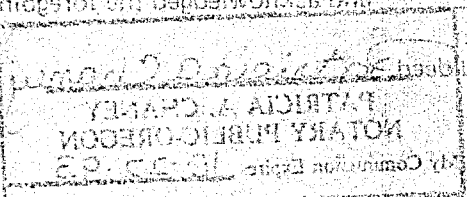 and acknowledged the foregoin
deed.
PATRICIA A. CHANEY
NOTARY PUBLIC-OREGON
My Commission Expire